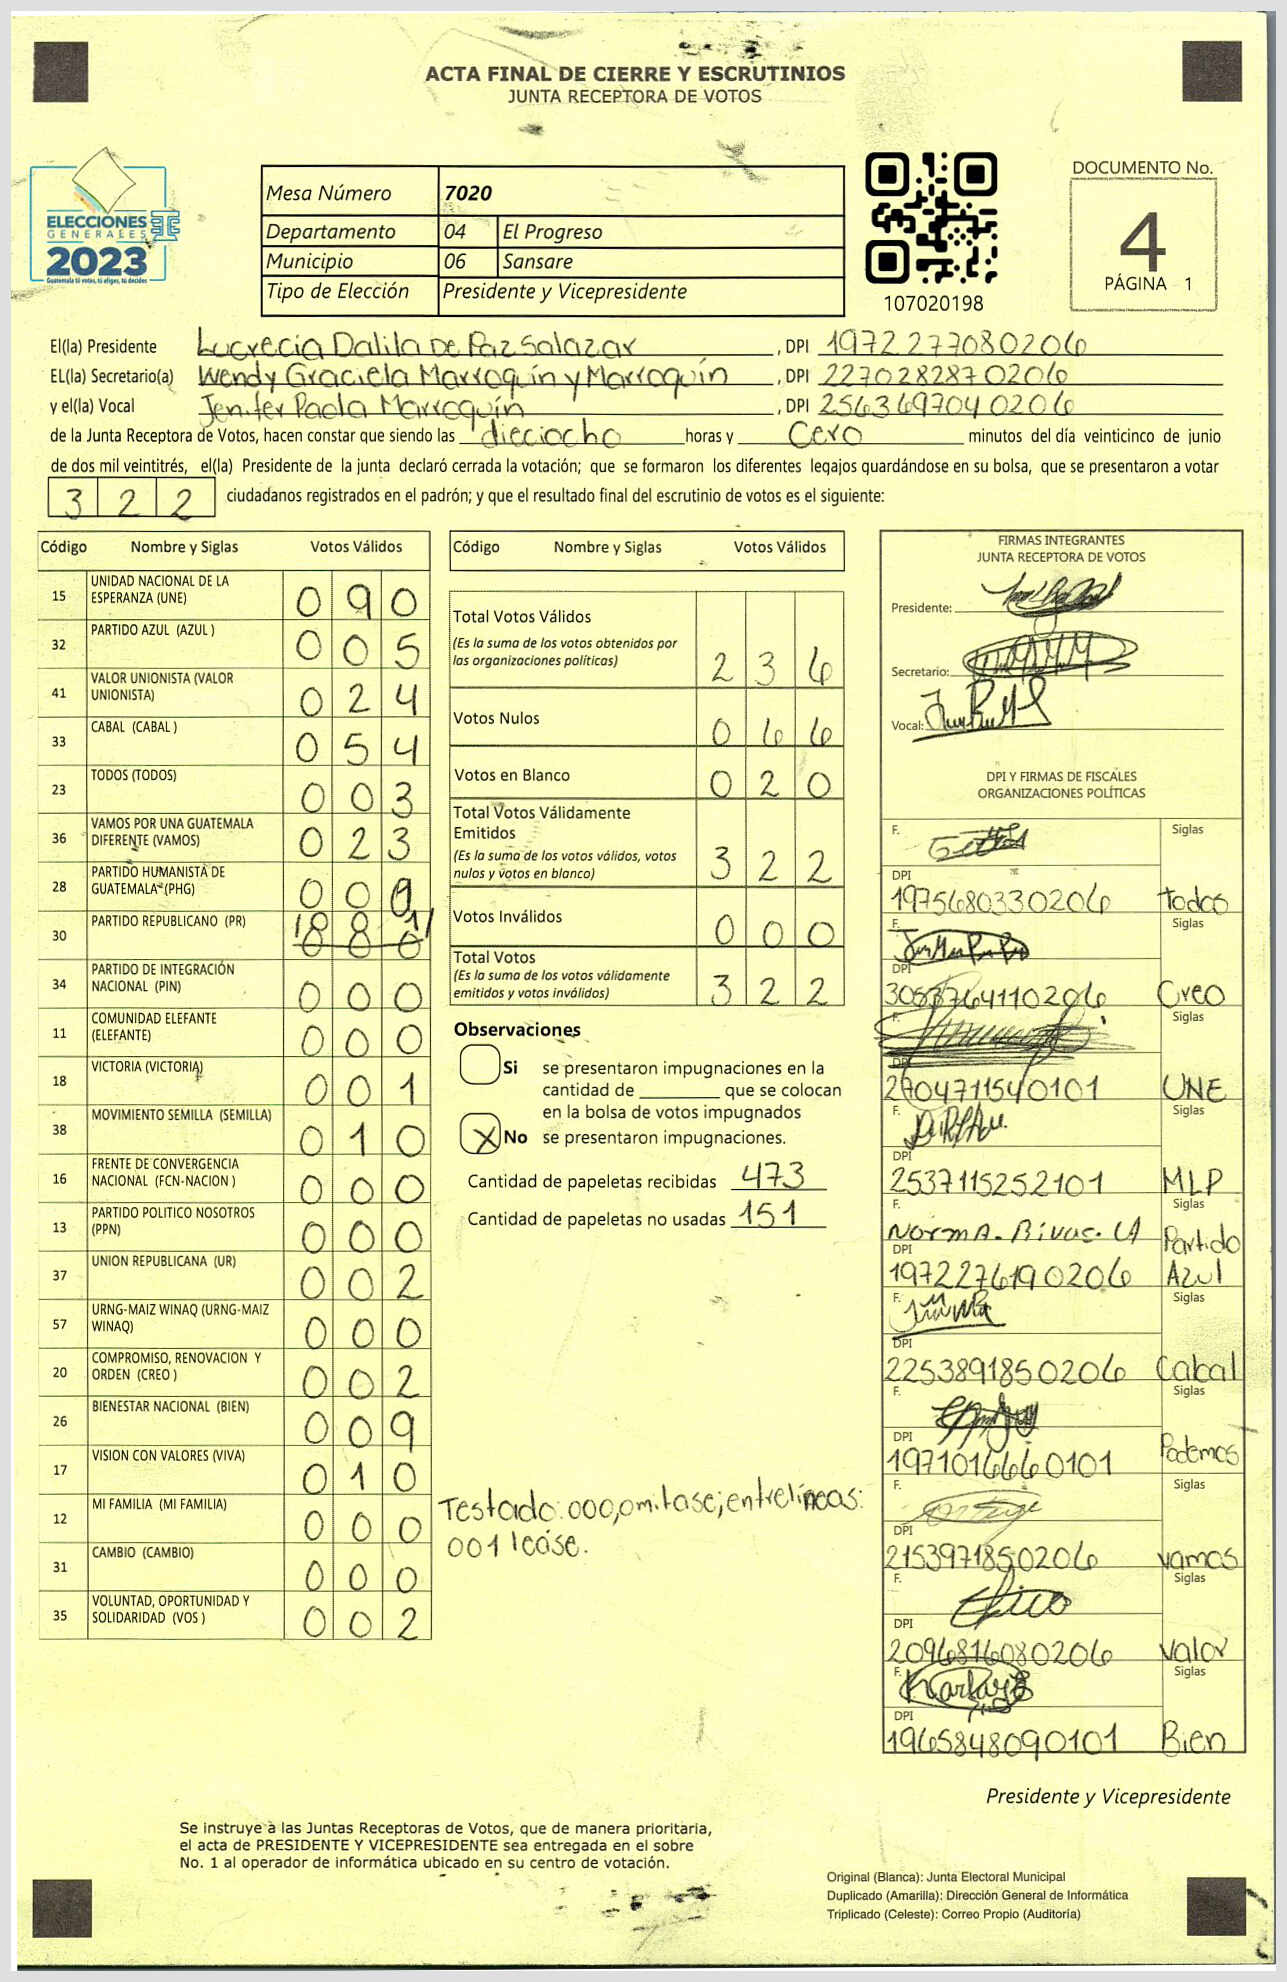 ACTA FINAL DE CIERRE Y ESCRUTINIOS
JUNTA RECEPTORA DE VOTOS
ELECCIONES
GENERALES
2023
Guatemala tú votas, tú eliges, tú decides
Mesa Número 7020
Departamento 04 El Progreso
Municipio 06 Sansare
Tipo de Elección Presidente y Vicepresidente
107020198
DOCUMENTO No.
4
PÁGINA 1
El(la) Presidente Lucrecia Dalila De Paz Salazar , DPI 1972277080206
EL(la) Secretario(a) Wendy Graciela Marroquín y Marroquín , DPI 2270282870206
y el(la) Vocal Jenifer Paola Marroquín , DPI 2563697040206
de la Junta Receptora de Votos, hacen constar que siendo las dieciocho horas y Cero minutos del día veinticinco de junio
de dos mil veintitrés, el(la) Presidente de la junta declaró cerrada la votación; que se formaron los diferentes legajos quardándose en su bolsa, que se presentaron a votar
322 ciudadanos registrados en el padrón; y que el resultado final del escrutinio de votos es el siguiente:
Código Nombre y Siglas Votos Válidos
15 UNIDAD NACIONAL DE LA ESPERANZA (UNE) 090
32 PARTIDO AZUL (AZUL ) 005
41 VALOR UNIONISTA (VALOR UNIONISTA) 024
33 CABAL (CABAL ) 054
23 TODOS (TODOS) 003
36 VAMOS POR UNA GUATEMALA DIFERENTE (VAMOS) 023
28 PARTIDO HUMANISTA DE GUATEMALA (PHG) 00
30 PARTIDO REPUBLICANO (PR)
34 PARTIDO DE INTEGRACIÓN NACIONAL (PIN) 000
11 COMUNIDAD ELEFANTE (ELEFANTE) 000
18 VICTORIA (VICTORIA) 001
38 MOVIMIENTO SEMILLA (SEMILLA) 010
16 FRENTE DE CONVERGENCIA NACIONAL (FCN-NACION ) 000
13 PARTIDO POLITICO NOSOTROS (PPN) 000
37 UNION REPUBLICANA (UR) 002
57 URNG-MAIZ WINAQ (URNG-MAIZ WINAQ) 000
20 COMPROMISO, RENOVACION Y ORDEN (CREO ) 002
26 BIENESTAR NACIONAL (BIEN) 009
17 VISION CON VALORES (VIVA) 010
12 MI FAMILIA (MI FAMILIA) 000
31 CAMBIO (CAMBIO) 000
35 VOLUNTAD, OPORTUNIDAD Y SOLIDARIDAD (VOS ) 002
Código Nombre y Siglas Votos Válidos
Total Votos Válidos 236
(Es la suma de los votos obtenidos por
las organizaciones políticas)
Votos Nulos 066
Votos en Blanco 020
Total Votos Válidamente
Emitidos 322
(Es la suma de los votos válidos, votos
nulos y votos en blanco)
Votos Inválidos 000
Total Votos 322
(Es la suma de los votos válidamente
emitidos y votos inválidos)
Observaciones
Si se presentaron impugnaciones en la
cantidad de ________ que se colocan
en la bolsa de votos impugnados
X No se presentaron impugnaciones.
Cantidad de papeletas recibidas 473
Cantidad de papeletas no usadas 151
Testado: 000, omitase; entrelíneas:
001 léase.
FIRMAS INTEGRANTES
JUNTA RECEPTORA DE VOTOS
Presidente:
Secretario:
Vocal:
DPI Y FIRMAS DE FISCALES
ORGANIZACIONES POLÍTICAS
F. Siglas
DPI
1975680330206 todos
F. Siglas
DPI
3053764110206 Creo
F. Siglas
DPI
2704711540101 UNE
F. Siglas
DPI
2537115252101 MLP
F. Siglas
Norma. Rivas. Partido
DPI
1972276190206 Azul
F. Siglas
DPI
2253891850206 Cabal
F. Siglas
DPI
1971016660101 Podemos
F. Siglas
DPI
2153971850206 vamos
F. Siglas
DPI
2096816080206 valor
F. Siglas
DPI
1965848090101 Bien
Presidente y Vicepresidente
Se instruye a las Juntas Receptoras de Votos, que de manera prioritaria,
el acta de PRESIDENTE Y VICEPRESIDENTE sea entregada en el sobre
No. 1 al operador de informática ubicado en su centro de votación.
Original (Blanca): Junta Electoral Municipal
Duplicado (Amarilla): Dirección General de Informática
Triplicado (Celeste): Correo Propio (Auditoría)